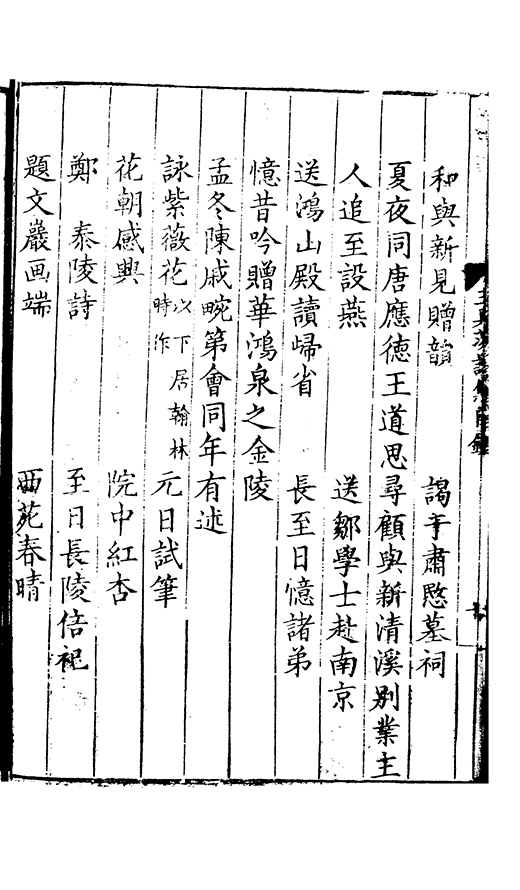 和與新見贈韻　謁于肅愍墓祠
夏夜同唐應德王道思尋顧與新清溪別業主
人追至設燕　送鄒學士赴南京
送鴻山殿讀歸省　長至日憶諸弟
憶昔吟贈華鴻泉之金陵
孟冬陳戚畹第會同年有述
詠紫薇花以下居翰林時作　元日試筆
花朝感興　院中紅杏
鄭　泰陵詩　至日長陵陪祀
題文巖画端　西苑春晴